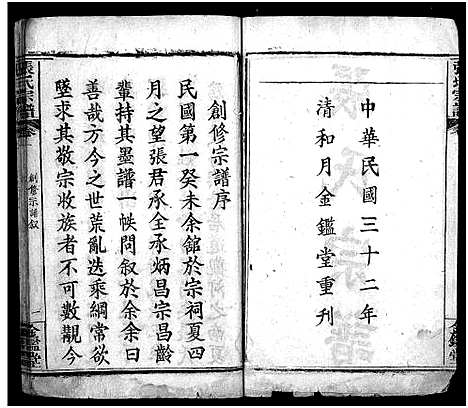 中華民國三十二年
清和月金鑑堂重刊
張氏宗譜
創修宗譜序
民國第一癸未余舘於宗祠夏四
月之望張君承全炳昌宗昌齡
輩持其墨譜一帙問叙於余余曰
善哉方今之世荒亂迭乘綱常欲
墜求其敬宗收族者不可數覯今
張氏宗譜
創修宗譜叙
一
金鑑堂